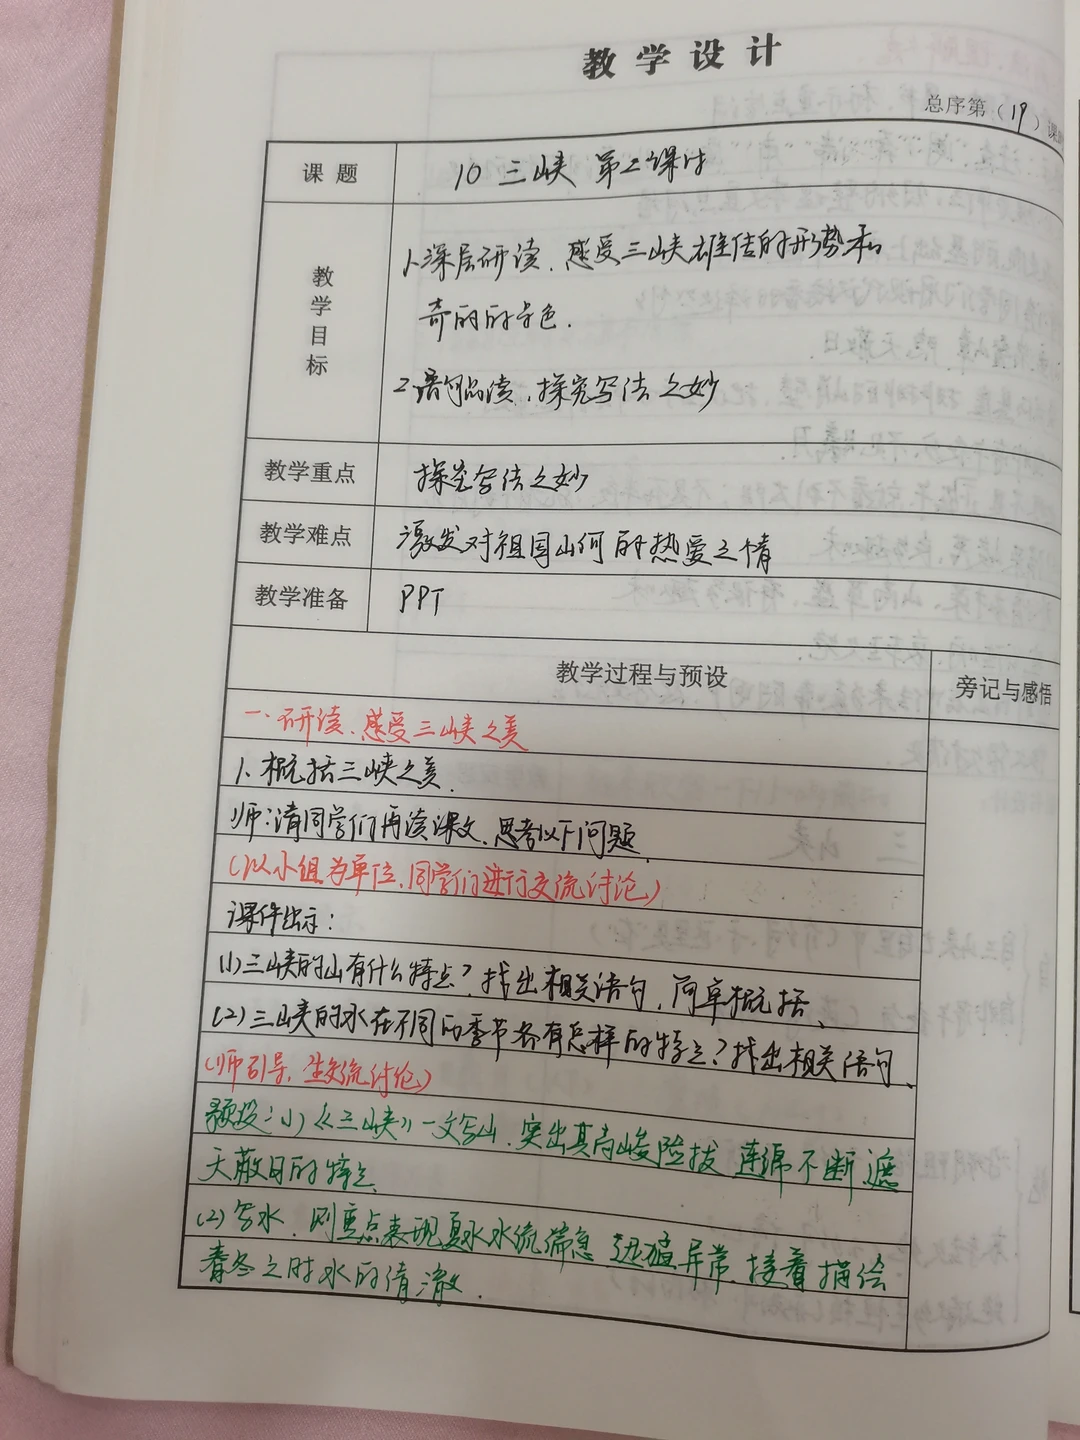 教学设计
总序第（19）课
课题
10 三峡 第二课时
教学目标
1.深层研读、感受三峡雄佳的形势和
奇丽的景色.
2.语句品读、探究写法之妙
教学重点
探究写法之妙
教学难点
激发对祖国山河的热爱之情
教学准备
PPT
教学过程与预设
旁记与感悟
一.研读、感受三峡之美
1、概括三峡之美.
师:请同学们再读课文、思考以下问题.
(以小组为单位、同学们进行交流讨论)
课件出示:
(1)三峡的山有什么特点?找出相关语句,简单概括、
(2)三峡的水在不同的季节各有怎样的特点?找出相关语句、
(师引导,生交流讨论)
预设:(1)《三峡》一文写山、突出其高峻险拔 连绵不断 遮
天蔽日的特点、
(2)写水、则重点表现夏水水流湍急 迅猛异常、接着描绘
春冬之时水的清澈.